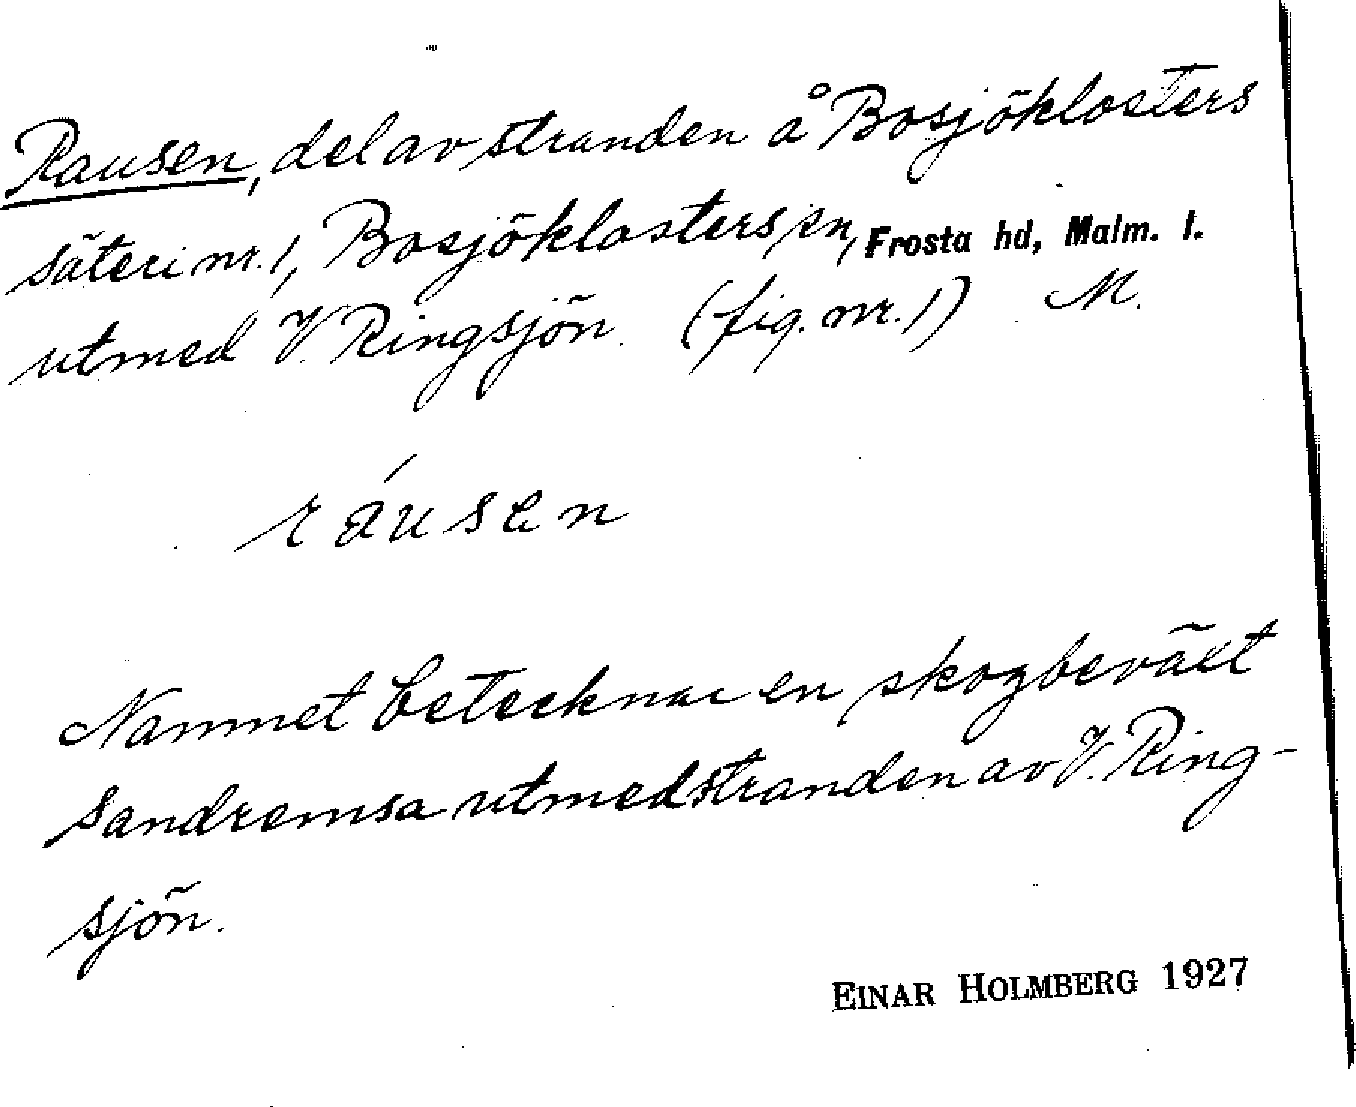 Rausen, del av stranden å Bosjöklosters
säteri nr. 1, Bosjöklosters sn, Frosta hd, Malm. l.
utmed V. Ringsjön. (fig. nr. 1) M.
ráusen
Namnet betecknar en skogbeväxt
sandremsa utmed stranden av V. Ring-
sjön.
EINAR HOLMBERG 1927